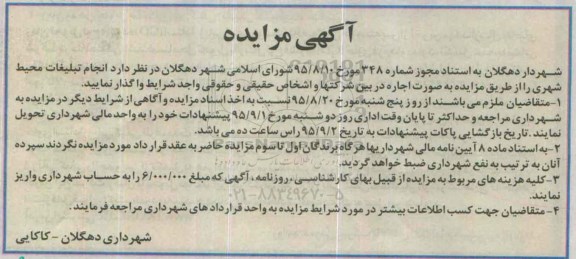 آگهی مزایده
شهردار دهگلان به استناد مجوز شماره ۳۴۸ مورخ ۹۵/۸/۱۰ شورای اسلامی شهر دهگلان در نظر دارد انجام تبلیغات محیط
شهری را از طریق مزایده به صورت اجاره در بین شرکتها و اشخاص حقیقی و حقوقی واجد شرایط واگذار نمایید.
۱- متقاضیان ملزم می باشند از روز پنج شنبه مورخ ۹۵/۸/۲۰ نسبت به اخذ اسناد مزایده و آگاهی از شرایط دیگر در مزایده به
شهرداری مراجعه و حداکثر تا پایان وقت اداری روز دو شنبه مورخ ۹۵/۹/۱ پیشنهادات خود را به واحد مالی شهرداری تحویل
نمایند. تاریخ بازگشایی پاکات پیشنهادات به تاریخ ۹۵/۹/۲ راس ساعت ده می باشد.
۲- به استناد ماده ۸ آیین نامه مالی شهرداریها هرگاه برندگان اول تا سوم مزایده حاضر به عقد قرار داد مورد مزایده نگردند سپرده
آنان به ترتیب به نفع شهرداری ضبط خواهد گردید.
۳- کلیه هزینه های مربوط به مزایده از قبیل بهای کارشناسی، روزنامه، آگهی که مبلغ ۶/۰۰۰/۰۰۰ را به حساب شهرداری واریز
نمایند.
۴- متقاضیان جهت کسب اطلاعات بیشتر در مورد شرایط مزایده به واحد قرارداد های شهرداری مراجعه فرمایند.
شهرداری دهگلان - کاکایی
۰۲۱-۸۸۳۴۹۶۷۰-۵